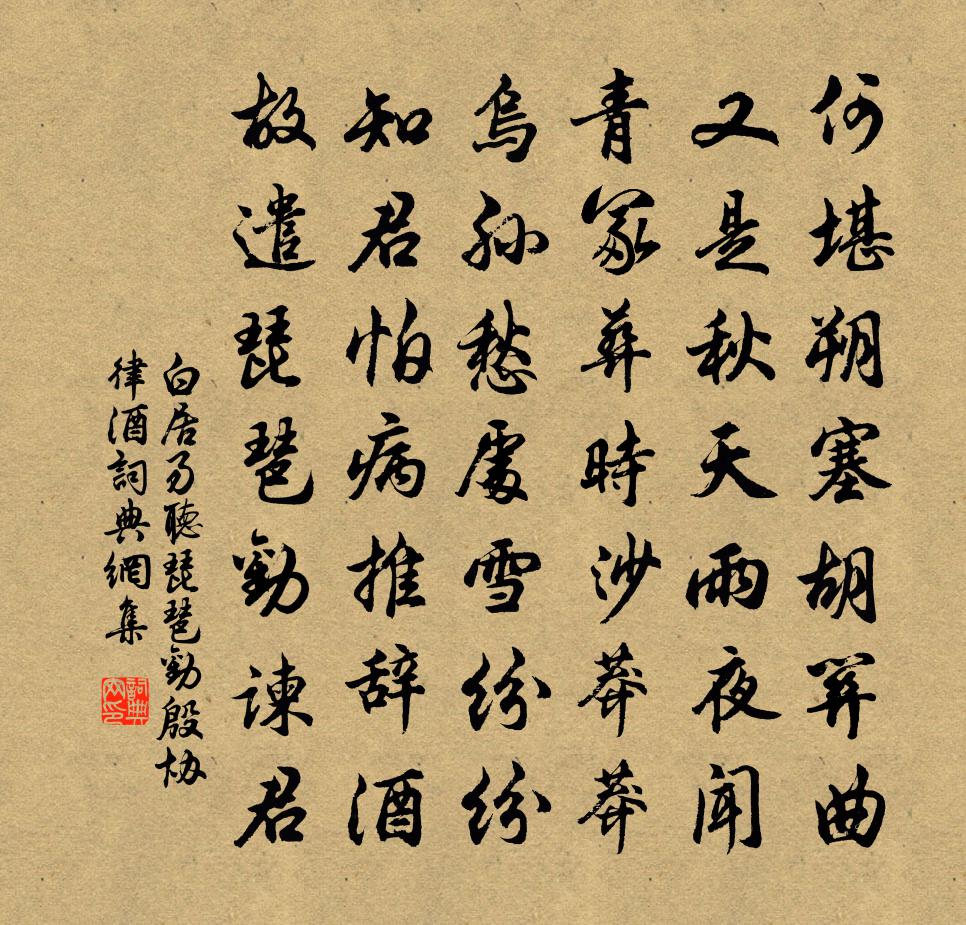 何堪朔塞胡笳曲
又是秋天雨夜闻
青冢葬時沙莽莽
烏孫愁處雪纷纷
知君怕病推辞酒
故遣琵琶勸諫君
白居易聽琵琶勸殷协
律酒詞典網集
詞典
网印